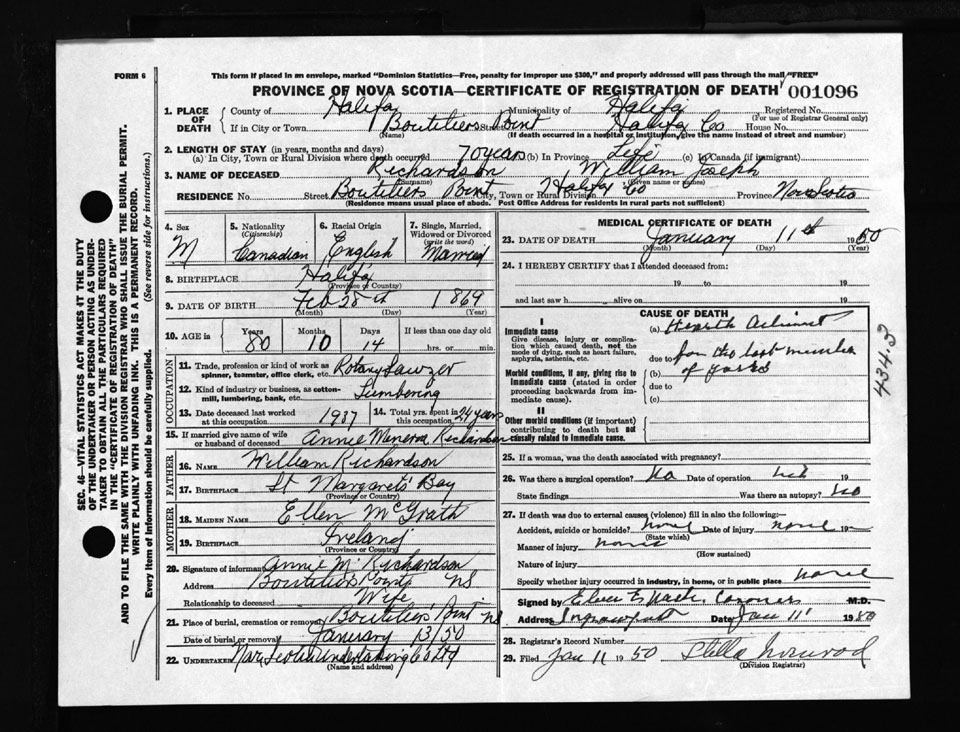 FORM 6
This form if placed in an envelope, marked "Dominion Statistics—Free, penalty for improper use $300," and properly addressed will pass through the mail "FREE"
PROVINCE OF NOVA SCOTIA—CERTIFICATE OF REGISTRATION OF DEATH 001096
1. PLACE OF DEATH County of Halifax Municipality of Halifax Registered No.
(For use of Registrar General only)
If in City or Town Boutiliers Point Street Halifax Co House No.
(Name) (If death occurred in a hospital or institution, give the name instead of street and number)
2. LENGTH OF STAY (in years, months and days)
(a) In City, Town or Rural Division where death occurred 70 years (b) In Province Life (c) In Canada (if immigrant)
3. NAME OF DECEASED Richardson William Joseph
(Surname) (Given name or names)
RESIDENCE No. Street Boutiliers Point City, Town or Rural Division Halifax Co Province Nova Scotia
(Residence means usual place of abode. Post Office Address for residents in rural parts not sufficient)
4. Sex M
5. Nationality (Citizenship) Canadian
6. Racial Origin English
7. Single, Married, Widowed or Divorced (write the word) Married
8. BIRTHPLACE Halifax
(Province or Country)
9. DATE OF BIRTH Feb 28th 1869
(Month) (Day) (Year)
10. AGE in Years 80 Months 10 Days 14 If less than one day old
hrs. or min.
OCCUPATION
11. Trade, profession or kind of work as spinner, teamster, office clerk, etc. Rotary Sawyer
12. Kind of industry or business, as cotton-mill, lumbering, bank, etc. Lumbering
13. Date deceased last worked at this occupation 1937
14. Total yrs. spent in this occupation 24 years
15. If married give name of wife or husband of deceased Annie Minerva Richardson
FATHER
16. NAME William Richardson
17. BIRTHPLACE St Margarets Bay
(Province or Country)
MOTHER
18. MAIDEN NAME Ellen McGrath
19. BIRTHPLACE Ireland
(Province or Country)
20. Signature of informant Annie M Richardson
Address Boutiliers Point NS
Relationship to deceased Wife
21. Place of burial, cremation or removal Boutiliers Point NS
Date of burial or removal January 13/50
22. UNDERTAKER Nova Scotia Undertaking Co Ltd
(Name and address)
MEDICAL CERTIFICATE OF DEATH
23. DATE OF DEATH January 11th 1950
(Month) (Day) (Year)
24. I HEREBY CERTIFY that I attended deceased from:
19 to 19
and last saw h alive on 19
CAUSE OF DEATH
I
Immediate cause
Give disease, injury or complication which caused death, not the mode of dying, such as heart failure, asphyxia, asthenia, etc.
(a) Health
due to for the last number
of years
Morbid conditions, if any, giving rise to immediate cause (stated in order proceeding backwards from immediate cause).
(b)
due to
(c)
II
Other morbid conditions (if important) contributing to death but not causally related to immediate cause.
4343
25. If a woman, was the death associated with pregnancy?
26. Was there a surgical operation? No Date of operation 19
State findings Was there an autopsy? No
27. If death was due to external causes (violence) fill in also the following:—
Accident, suicide or homicide? none Date of injury none 19
(State which)
Manner of injury none
(How sustained)
Nature of injury
Specify whether injury occurred in industry, in home, or in public place none
Signed by Coroner M.D.
Address Date Jan 11 1950
28. Registrar's Record Number
29. Filed Jan 11 1950 Stella
(Division Registrar)
SEC. 46—VITAL STATISTICS ACT MAKES IT THE DUTY
OF THE UNDERTAKER OR PERSON ACTING AS UNDER-
TAKER TO OBTAIN ALL THE PARTICULARS REQUIRED
IN THE "CERTIFICATE OF REGISTRATION OF DEATH"
AND TO FILE THE SAME WITH THE DIVISION REGISTRAR WHO SHALL ISSUE THE BURIAL PERMIT.
WRITE PLAINLY WITH UNFADING INK. THIS IS A PERMANENT RECORD.
Every item of information should be carefully supplied. (See reverse side for instructions.)